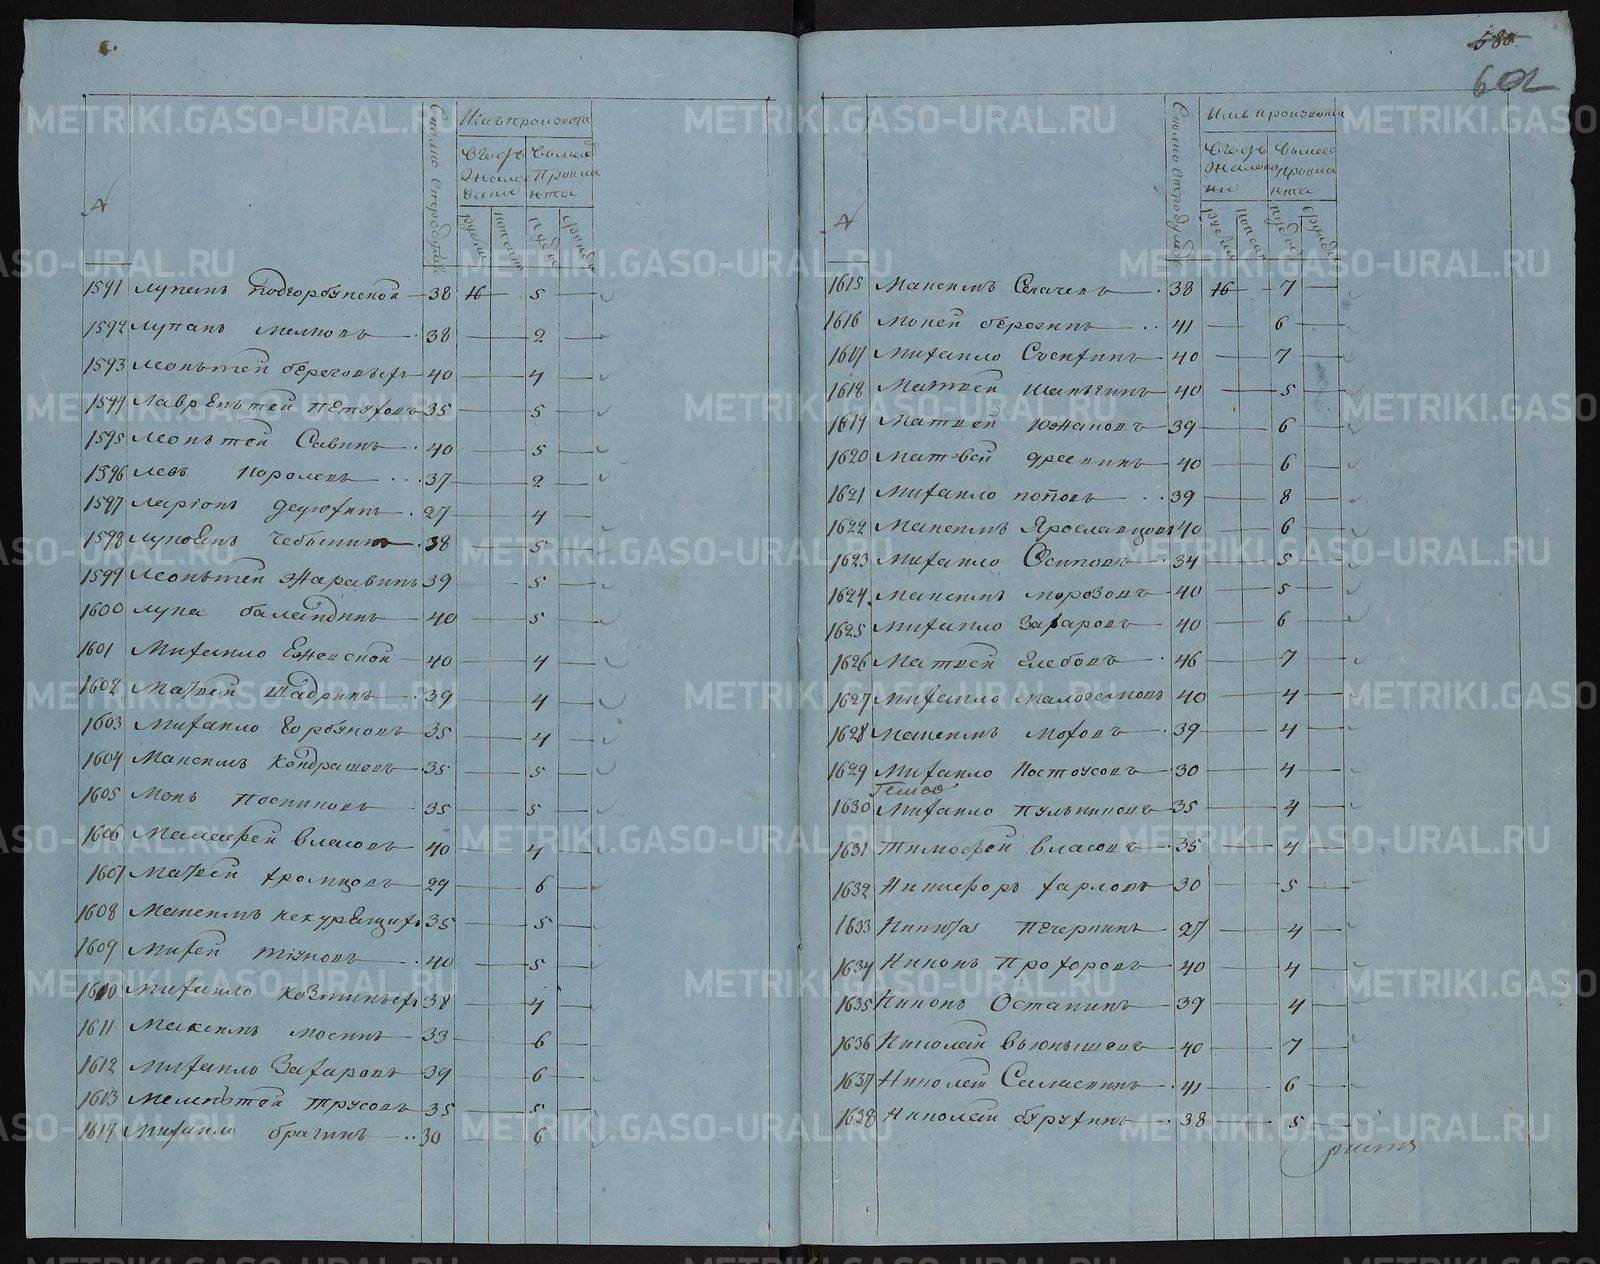 580
602
№
Сколко отроду лѣтъ
Имъ производится
Въ годъ жалованья
рубли
копѣйки
пуды
фунты
1591 Лупанъ Подгорбунской 38 16 5
1592 Лупанъ Мелковъ 38 2
1593 Леонътей Береговыхъ 40 4
1594 Лаврентей Петуховъ 35 5
1595 Леонътей Савинъ 40 5
1596 Левъ Королевъ 37 2
1597 Ларіонъ Дедюхинъ 27 4
1598 38 5
1599 Леонътей Жаравинъ 39 5
1600 Лука Баландинъ 40 5
1601 Михайло Ежевской 40 4
1602 Матвей Шадринъ 39 4
1603 Михайло Горбуновъ 35 4
1604 Максимъ Кондрашовъ 35 5
1605 35 5
1606 Малафей Власовъ 40 4
1607 Матвей Хромцовъ 29 6
1608 Максимъ Некурящихъ 35 5
1609 Михей Тиуновъ 40 5
1610 Михайло Козминыхъ 38 4
1611 Максимъ Мосинъ 33 6
1612 Михайло Захаровъ 39 6
1613 Трусовъ 35 5
1614 Михайло Брагинъ 30 6
№
Сколко отроду лѣтъ
Имъ производится
рубли
копѣйки
пуды
фунты
1615 Максимъ 38 16 7
1616 Мокей Березинъ 41 6
1617 Михайло 40 7
1618 Матвей Шапычинъ 40 5
1619 Матвей Южаковъ 39 6
1620 Матвей 40 6
1621 Михайло Поповъ 39 8
1622 Максимъ Ярославцовъ 40 6
1623 Михайло Осиповъ 34 5
1624 Максимъ Морозовъ 40 5
1625 Михайло Захаровъ 40 6
1626 Матвей Глебовъ 46 7
1627 Михайло Малоземовъ 40 4
1628 Максимъ Моховъ 39 4
1629 Михайло Костоусовъ 30 4
1630 Михайло Пульниковъ 35 4
1631 Тимофей Власовъ 35 4
1632 Никифоръ Харловъ 30 5
1633 Никита Печеркинъ 27 4
1634 Никонъ Прохоровъ 40 4
1635 Никонъ Останинъ 39 4
1636 Николай Вьюнышевъ 40 7
1637 Николай 41 6
1638 Николай Бурухинъ 38 5